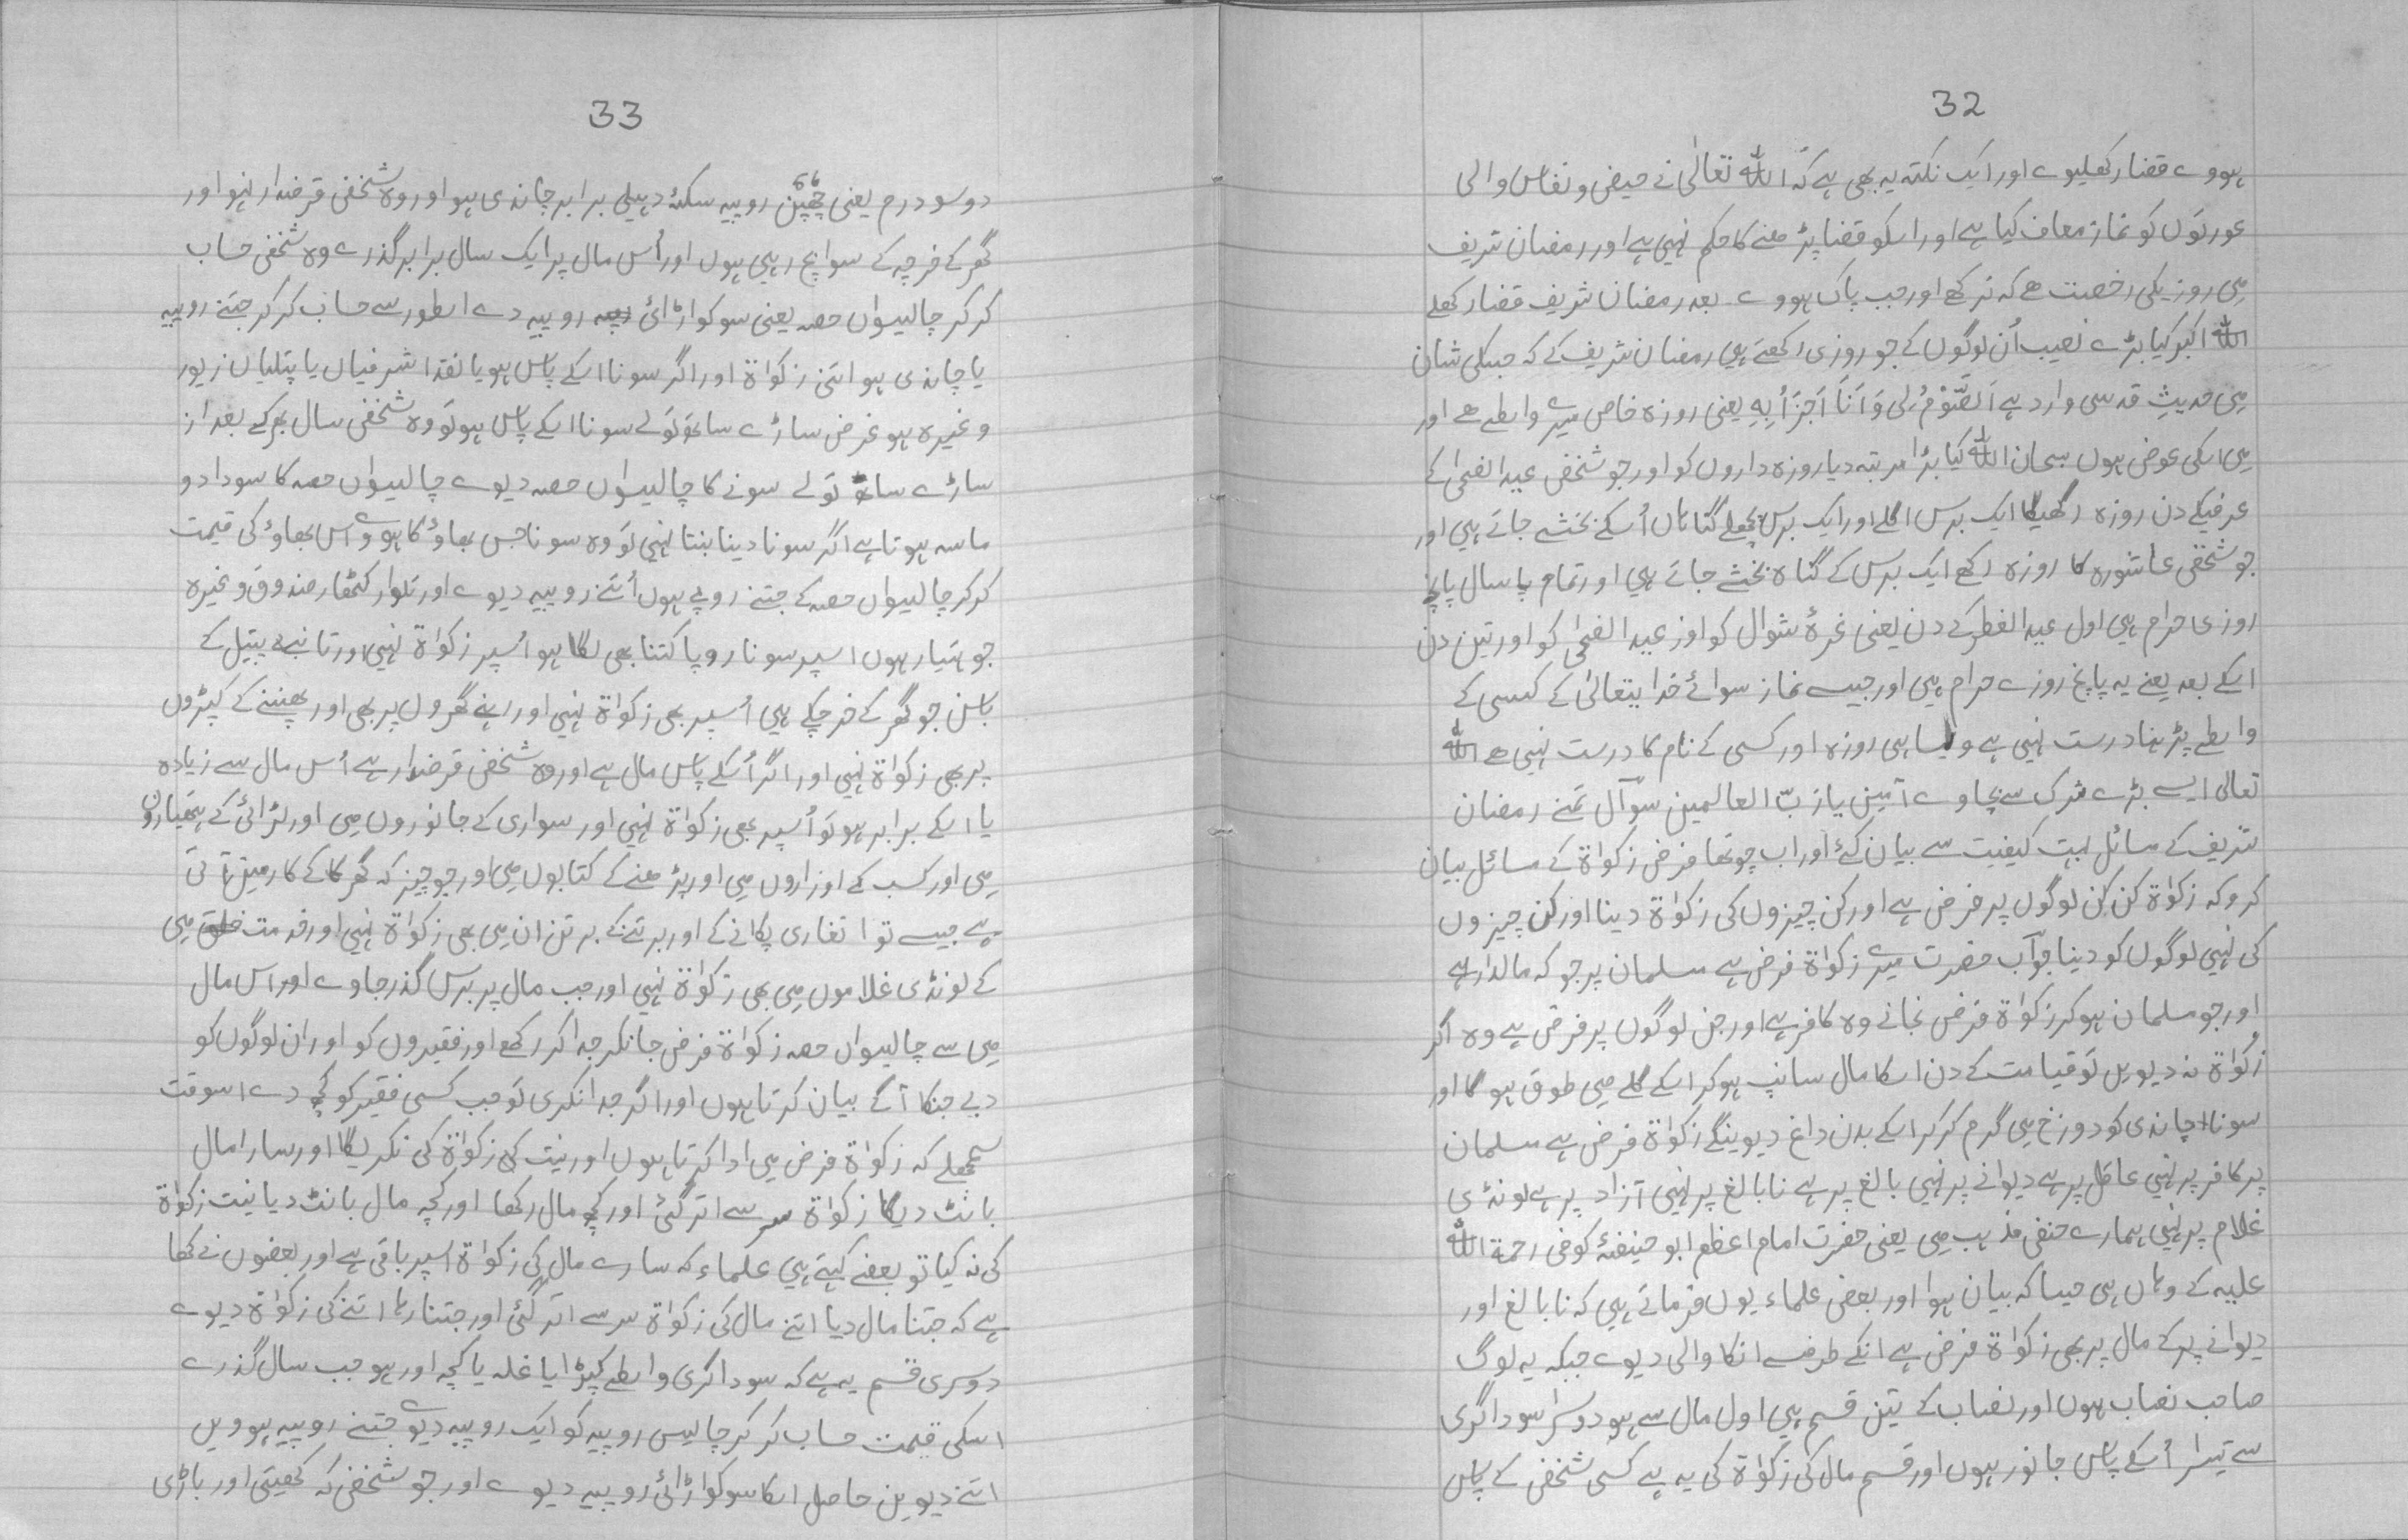 32
ہووے قضا رکھلیوے اور ایک نکتہ یہ بھی ہے کہ اللہ تعالٰی نے حیض و نفاس والی
عورتوں کو نماز معاف کیا ہے اور اسکو قضا پڑھنے کا حکم نہیں ہے اور رمضان شریف
میں روزیکی رخصت ہے کہ نرکھے اور جب پاک ہووے بعد رمضان شریف قضا رکھلے
اللہ اکبر کیا بڑے نصیب اُن لوگوں کے جو روزی رکھتے ہیں رمضان شریف کے کہ جسکی شان
میں حدیثِ قدسی وارد ہے اَلصَّوْمُ لِی وَ اَنَا اَجْزَأُ بِهِ یعنی روزہ خاص میرے واسطے ہے اور
میں اسکی عوض ہوں سبحان اللہ کیا بڑا مرتبہ دیا روزہ داروں کو اور جو شخص عید الضحٰی کے
عرفیکے دن روزہ رکھیگا ایک برس اگلے اور ایک برس پچھلے گناہاں اُسکے بخشے جاتے ہیں اور
جو شخص عاشورہ کا روزہ رکھے ایک برس کے گناہ بخشے جاتے ہیں اور تمام سال پانچ
روزی حرام ہیں اول عید الفطر کے دن یعنی غرۂ شوال کو اور عید الضحٰی کو اور تین دن
اسکے بعد یعنے یہ پانچ روزے حرام ہیں اور جیسے نماز سوائے خدایتعالٰی کے کسی کے
واسطے پڑہنا درست نہیں ہے ویسا ہی روزہ اور کسی کے نام کا درست نہیں ہے اللہ
تعالی ایسے بڑے شرک سے بچاوے آمین یا ربّ العالمین سوآل تمنے رمضان
شریف کے مسائل بہت کیفیت سے بیان کئے اور اب چوتھا فرض زکواۃ کے مسائل بیان
کرو کہ زکواۃ کن کن لوگوں پر فرض ہے اور کن چیزوں کی زکواۃ دینا اور کن چیزوں
کی نہیں لوگوں کو دینا جوآب حضرت میرے زکواۃ فرض ہے مسلمان پر جو کہ مالدار ہے
اور جو مسلمان ہو کر زکواۃ فرض نجانے وہ کافر ہے اور جن لوگوں پر فرض ہے وہ اگر
زکواۃ نہ دیویں تو قیامت کے دن اسکا مال سانپ ہو کر اسکے گلے میں طوق ہوگا اور
سونا چاندی کو دوزخ میں گرم کر کر اسکے بدن داغ دیوینگے زکواۃ فرض ہے مسلمان
پر کافر پر نہیں عاقل پر ہے دیوانے پر نہیں بالغ پر ہے نابالغ پر نہیں آزاد پر ہے لونڈی
غلام پر نہیں ہمارے حنفی مذہب میں یعنی حضرت امام اعظم ابو حنیفۂ کوفی رحمۃ اللہ
علیہ کے وہاں ہیں جیسا کہ بیان ہوا اور بعض علماء یوں فرماتے ہیں کہ نابالغ اور
دیوانے پر کے مال پر بھی زکواۃ فرض ہے انکے طرفسے انکا والی دیوے جبکہ یہ لوگ
صاحب نصاب ہوں اور نصاب کے تین قسم ہیں اول مال سے ہو دوسرا سوداگری
سے تیسرا اُسکے پاس جانور ہوں اور قسم مال کی زکواۃ کی یہ ہے کسی شخص کے پاس
33
دو سو درم یعنی چھپن 56 روپیہ سکۂ دہیلی برابر چاندی ہو اور وہ شخص قرضدار نہو اور
گھر کے خرچہ کے سوا بچ رہی ہوں اور اُس مال پر ایک سال برابر گذرے وہ شخص حساب
کر کر چالیسواں حصہ یعنی سو کو اڑائی روپیہ دے اسطور سے حساب کر کر جتنے روپیہ
یا چاندی ہو اتنی زکواۃ اور اگر سونا اسکے پاس ہو یا نقد اشرفیاں یا پتلیاں زیور
وغیرہ ہو غرض ساڑے سات تولے سونا اسکے پاس ہو تو وہ شخص سال بھر کے بعد از
ساڑے سات تولے سونے کا چالیسواں حصہ دیوے چالیسواں حصہ کا سوا دو
ماسہ ہوتا ہے اگر سونا دینا بنتا نہیں تو وہ سونا جس بھاؤ کا ہووے اس بھاؤ کی قیمت
کر کر چالیسواں حصہ کے جتنے روپے ہوں اُتنے روپیہ دیوے اور تلوار کٹھار صندوق وغیرہ
جو ہتیار ہوں اسپر سونا روپا کتنا بھی لگا ہو اُسپر زکواۃ نہیں اور تانبے پیتل کے
باسن جو گھر کے خرچکے ہیں اُسپر بھی زکواۃ نہیں اور رہنے گھروں پر بھی اور پھننے کے کپڑوں
پر بھی زکواۃ نہیں اور اگر اُسکے پاس مال ہے اور وہ شخص قرضدار ہے اُس مال سے زیادہ
یا اسکے برابر ہو تو اُسپر بھی زکواۃ نہیں اور سواری کے جانوروں میں اور لڑائی کے ہتھیاروں
میں اور کسب کے اوزاروں میں اور پڑھنے کے کتابوں میں اور جو چیز کہ گھر کے کارمیں آتی
ہے جیسے توا تغاری پکانے کے اور برتنے کے برتن ان میں بھی زکواۃ نہیں اور خدمت میں
کے لونڈی غلاموں میں بھی زکواۃ نہیں اور جب مال پر برس گذر جاوے اور اس مال
میں سے چالیسواں حصہ زکواۃ فرض جانکر جدا کر رکھے اور فقیروں کو اور ان لوگوں کو
دے جنکا آگے بیان کرتا ہوں اور اگر جدا نکری تو جب کسی فقیر کو کچھ دے اسوقت
سمجھلے کہ زکواۃ فرض میں ادا کرتا ہوں اور نیت کی زکواۃ کی نکریگا اور سارا مال
بانٹ دیگا زکواۃ سر سے اتر گئی اور کچھ مال رکھا اور کچھ مال بانٹ دیا نیت زکواۃ
کی نہ کیا تو بعضے کہتے ہیں علماء کہ سارے مال کی زکواۃ اسپر باقی ہے اور بعضوں نے کھا
ہے کہ جتنا مال دیا اتنے مال کی زکواۃ سر سے اتر گئی اور جتنا رہا اتنے کی زکواۃ دیوے
دوسری قسم یہ ہے کہ سوداگری واسطے کپڑا یا غلہ یا کچھ اور ہو جب سال گذرے
اسکی قیمت حساب کر کر چالیس روپیہ کو ایک روپیہ دیوے جتنے روپیہ ہوویں
اتنے دیویں حاصل اسکا سو کو اڑائی روپیہ دیوے اور جو شخص کہ کھیتی اور باڑی